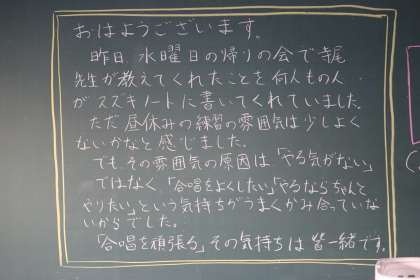 おはようございます。
昨日、水曜日の帰りの会で寺尾
先生が教えてくれたことを何人もの人
がスズキノートに書いてくれていました。
ただ昼休みの練習の雰囲気は少しよく
ないかなと感じました。
でも、その雰囲気の原因は「やる気がない」
ではなく、「合唱をよくしたい」「やるならちゃんと
やりたい」という気持ちがうまくかみ合っていな
いからでした。
「合唱を頑張る」その気持ちは皆一緒です。